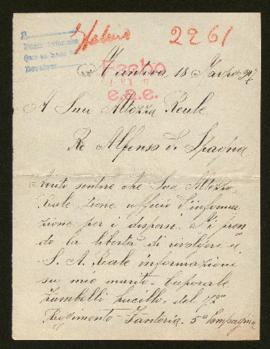 2261
Mantova 18 Marzo 917
A Sua Altezza Reale
Re Alfonso di Spagna
Avuto sentore che Sua Altezza
Reale tiene ufficio d'informa
zione per i dispersi. Mi pren
do la libertà di rivolgere a
S. A. Reale informazione
su mio marito. Caporale
Zambelli del 72º
Regimento Fanteria 5ª Compagnia